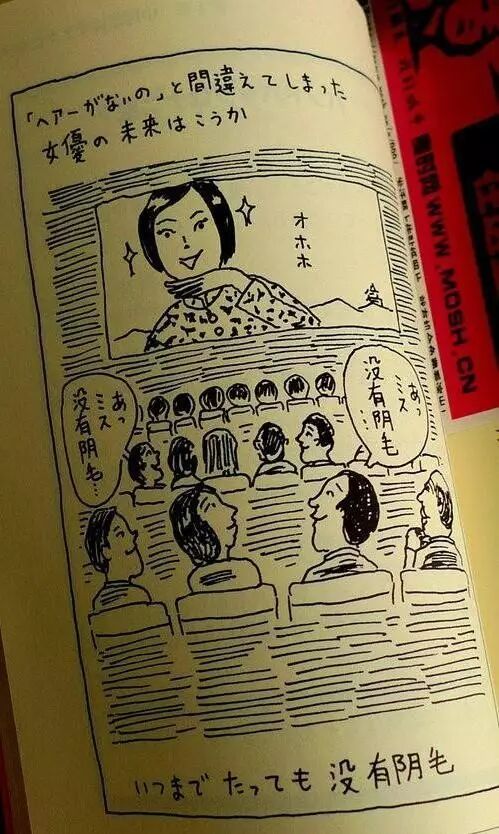 「ヘアーがないの」と間違えてしまった
女優の未来はこうか
オホホ
あっ
ミス
没有阴毛…
あっ
ミス
没有阴毛…
いつまでたっても没有阴毛
WWW.MOSH.CN